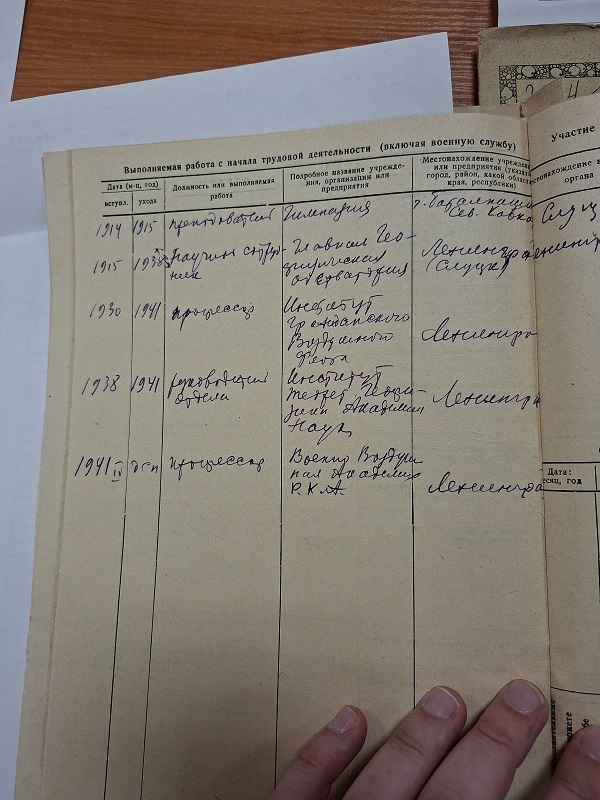 Выполняемая работа с начала трудовой деятельности (включая военную службу)
Дата (м-ц, год)
вступл.
ухода
Должность или выполняемая
работа
Подробное название учрежде-
ния, организации или
предприятия
Местонахождение учрежден
или предприятия (указать
город, район, какой области
края, республики)
1914 1915 преподователь Гимназия
Сев. Кавка
1915 1938
Научный сотруд-
ник
Главная Гео-
физическая
обсерватория
Ленингра
(Слуцк)
1930 1941 профессор
Институт
Гражданского
Воздушного
Флота
Ленингра
1938 1941
руководитель
отдела
Институт
Теорет. Геофи-
зики Академии
Наук
Ленингра
1941 IV профессор
Воздуш
ная Академия
Р.К.А.
Ленингра
Участие
естонахождение в
органа
Слуц
енингр
Дата:
есяц, год